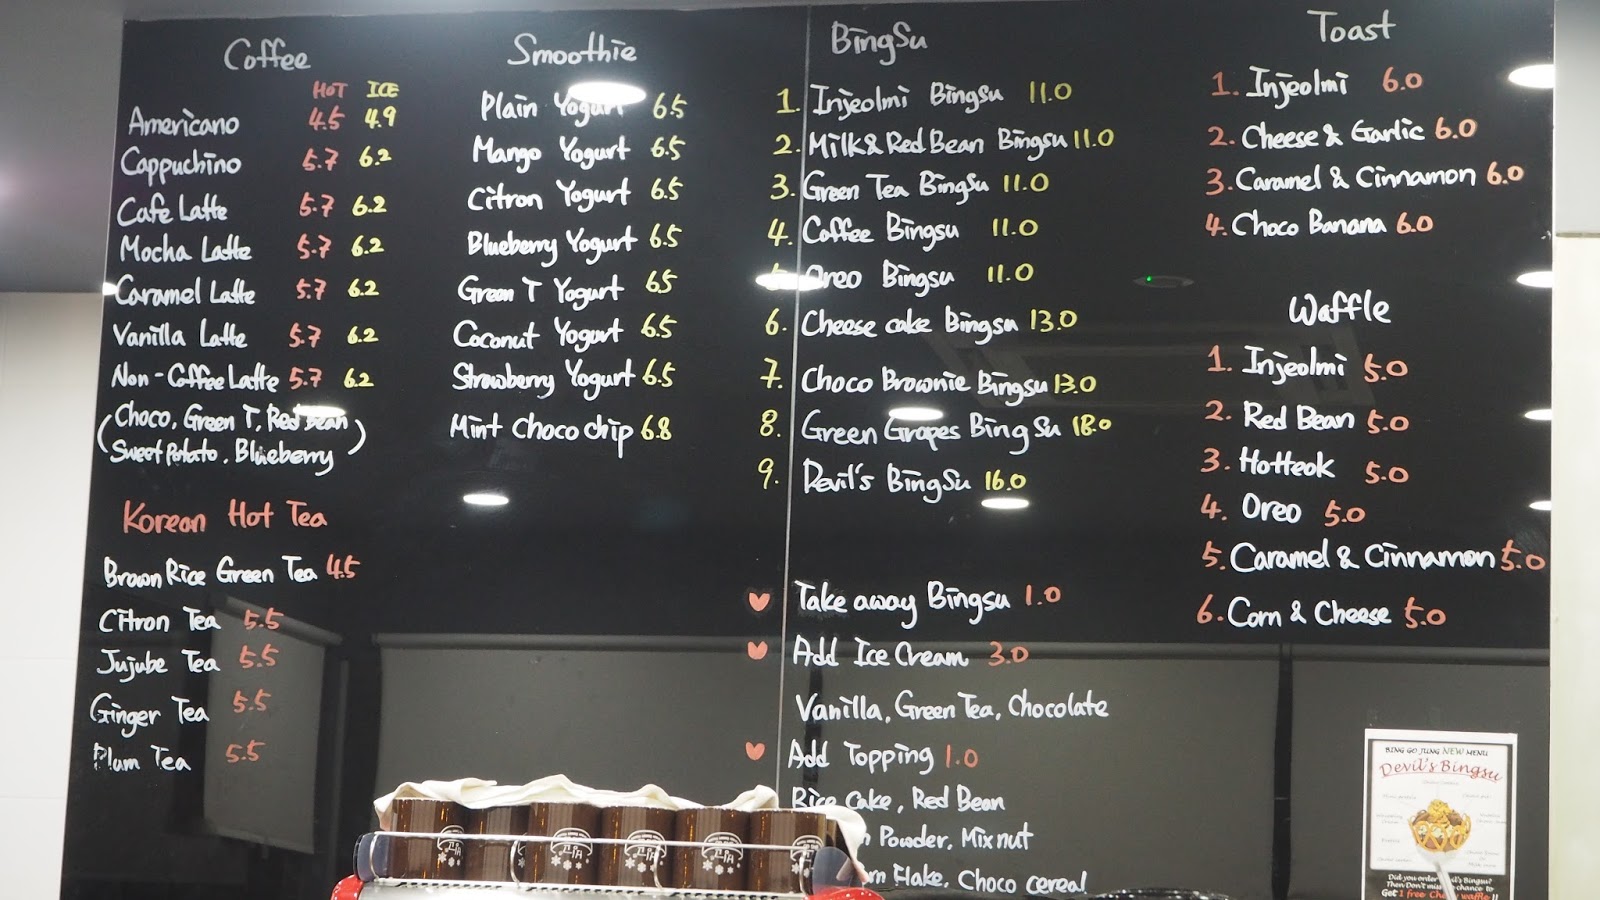 Coffee
HOT ICE
Americano 4.5 4.9
Cappuchino 5.7 6.2
Cafe Latte 5.7 6.2
Mocha Latte 5.7 6.2
Caramel Latte 5.7 6.2
Vanilla Latte 5.7 6.2
Non-Coffee Latte 5.7 6.2
(Choco, Green T, Red Bean
Sweet Potato, Blueberry)
Korean Hot Tea
Brown Rice Green Tea 4.5
Citron Tea 5.5
Jujube Tea 5.5
Ginger Tea 5.5
Plum Tea 5.5
Smoothie
Plain Yogurt 6.5
Mango Yogurt 6.5
Citron Yogurt 6.5
Blueberry Yogurt 6.5
Green T Yogurt 6.5
Coconut Yogurt 6.5
Strawberry Yogurt 6.5
Mint Choco chip 6.8
BingSu
1. Injeolmi Bingsu 11.0
2. Milk&Red Bean Bingsu 11.0
3. Green Tea BingSu 11.0
4. Coffee Bingsu 11.0
5. Oreo Bingsu 11.0
6. Cheese cake Bingsu 13.0
7. Choco Brownie Bingsu 13.0
8. Green Grapes BingSu 18.0
9. Devil's BingSu 16.0
Take away Bingsu 1.0
Add Ice Cream 3.0
Vanilla, Green Tea, Chocolate
Add Topping 1.0
Rice Cake, Red Bean
Powder, Mix nut
Flake, Choco cereal
Toast
1. Injeolmi 6.0
2. Cheese & Garlic 6.0
3. Caramel & Cinnamon 6.0
4. Choco Banana 6.0
Waffle
1. Injeolmi 5.0
2. Red Bean 5.0
3. Hotteok 5.0
4. Oreo 5.0
5. Caramel & Cinnamon 5.0
6. Corn & Cheese 5.0
BING GO JUNG NEW MENU
Devil's Bingsu
Did you order Devil's Bingsu?
Then Don't miss chance to
Get 1 free waffle!!